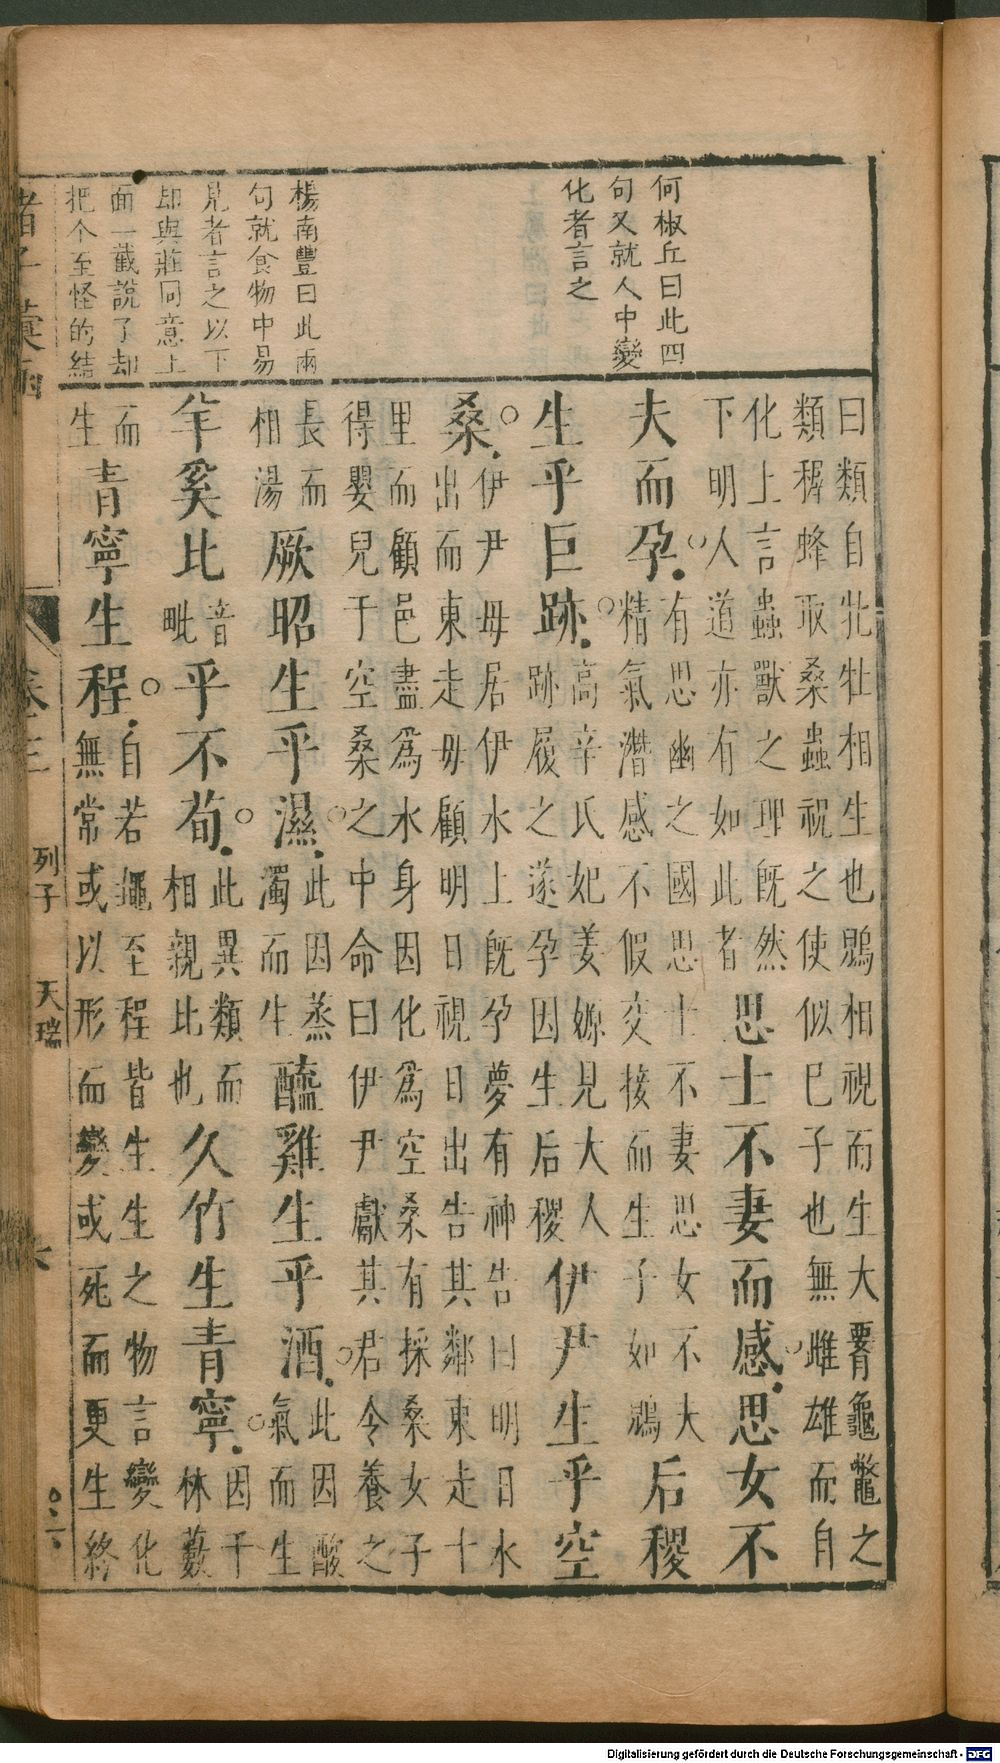 何椒丘曰此四
句又就人中變
化者言之
楊南豐曰此兩
句就食物中易
見者言之以下
却與莊同意上
面一截說了却
把个至怪的結
曰類自牝牡相生也鵙相視而生大䏿龜鱉之
類稺蜂取桑蟲祝之使似巳子也無雌雄而自
化上言蟲獸之理旣然下明人道亦有如此者思士不妻而感思女不
夫而孕有思幽之國思士不妻思女不大精氣潛感不假交接而生子如鵙后稷
生乎巨跡高辛氏妃姜嫄見大人跡履之遂孕因生后稷伊尹生乎空
桑伊尹母居伊水上旣孕夢有神告曰明日水出而東走毋顧明日視日出告其鄰東走十
里而顧邑盡爲水身因化爲空桑有採桑女子得嬰兒于空桑之中命曰伊尹獻其君令養之
長而相湯厥昭生乎濕此因蒸濁而生醯雞生乎酒此因酸氣而生
羊奚比音毗乎不荀此異類而相親比也久竹生青寧因于林藪
而生青寧生程自若䵷至程皆生生之物言變化無常或以形而變或死而更生終
諸子彙函
卷三
列子 天瑞
六
Digitalisierung gefördert durch die Deutsche Forschungsgemeinschaft - DFG